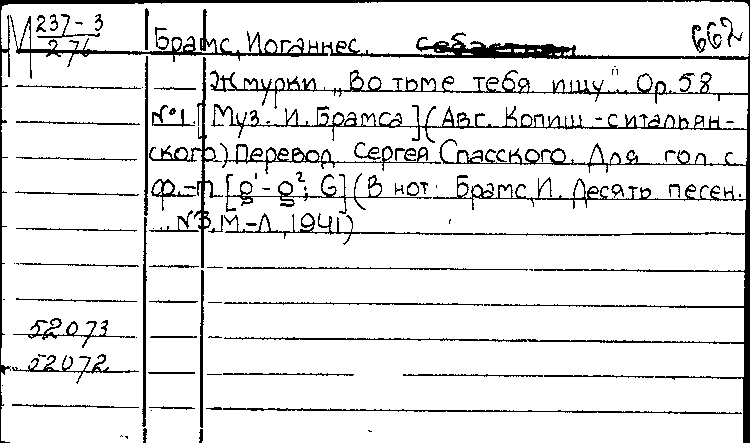 М 237-3
276
Брамс, Иоганнес. Себастиян
662
Жмурки „Во тьме тебя ищу". Op. 58,
№1. [Муз. И. Брамса] (Авг. Копиш - с итальян-
ского) Перевод Сергея Спасского. Для гол. с
ф.-п. [g¹-g²; G] (В нот: Брамс, И. Десять песен.
.. №3. М.-Л., 1941)
52073
52072